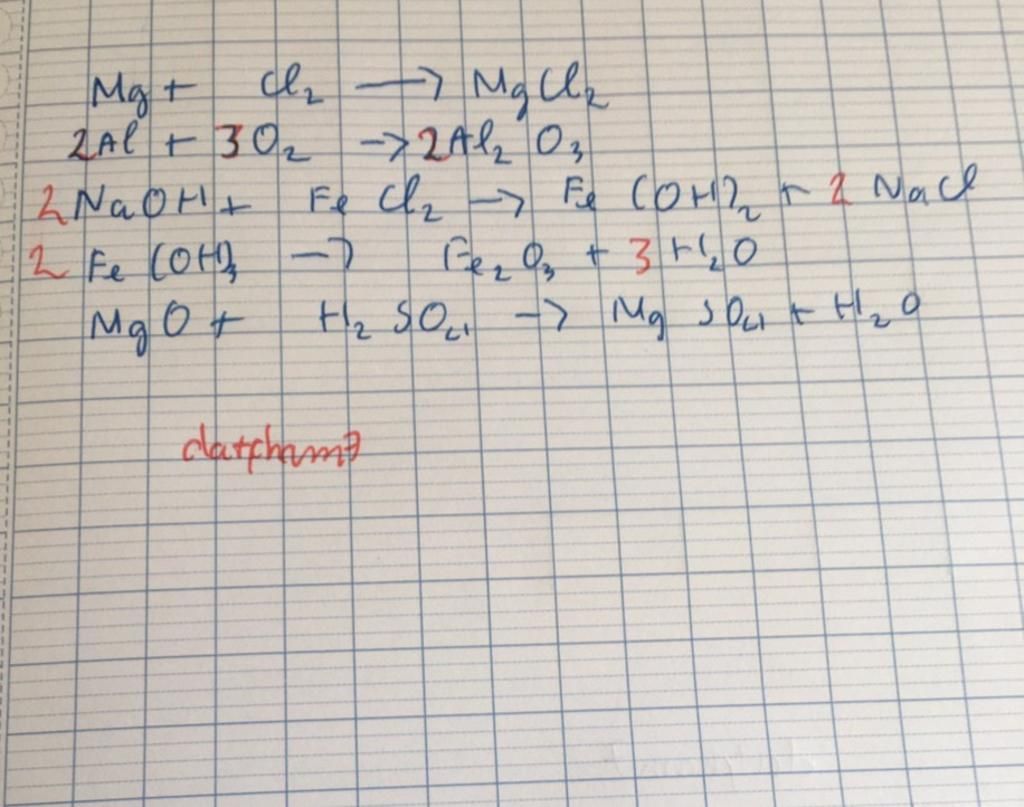 Mg + Cl₂ → MgCl₂
2Al + 3O₂ → 2Al₂O₃
2NaOH + FeCl₂ → Fe(OH)₂ + 2NaCl
2Fe(OH)₃ → Fe₂O₃ + 3H₂O
MgO + H₂SO₄ → MgSO₄ + H₂O
datpham7